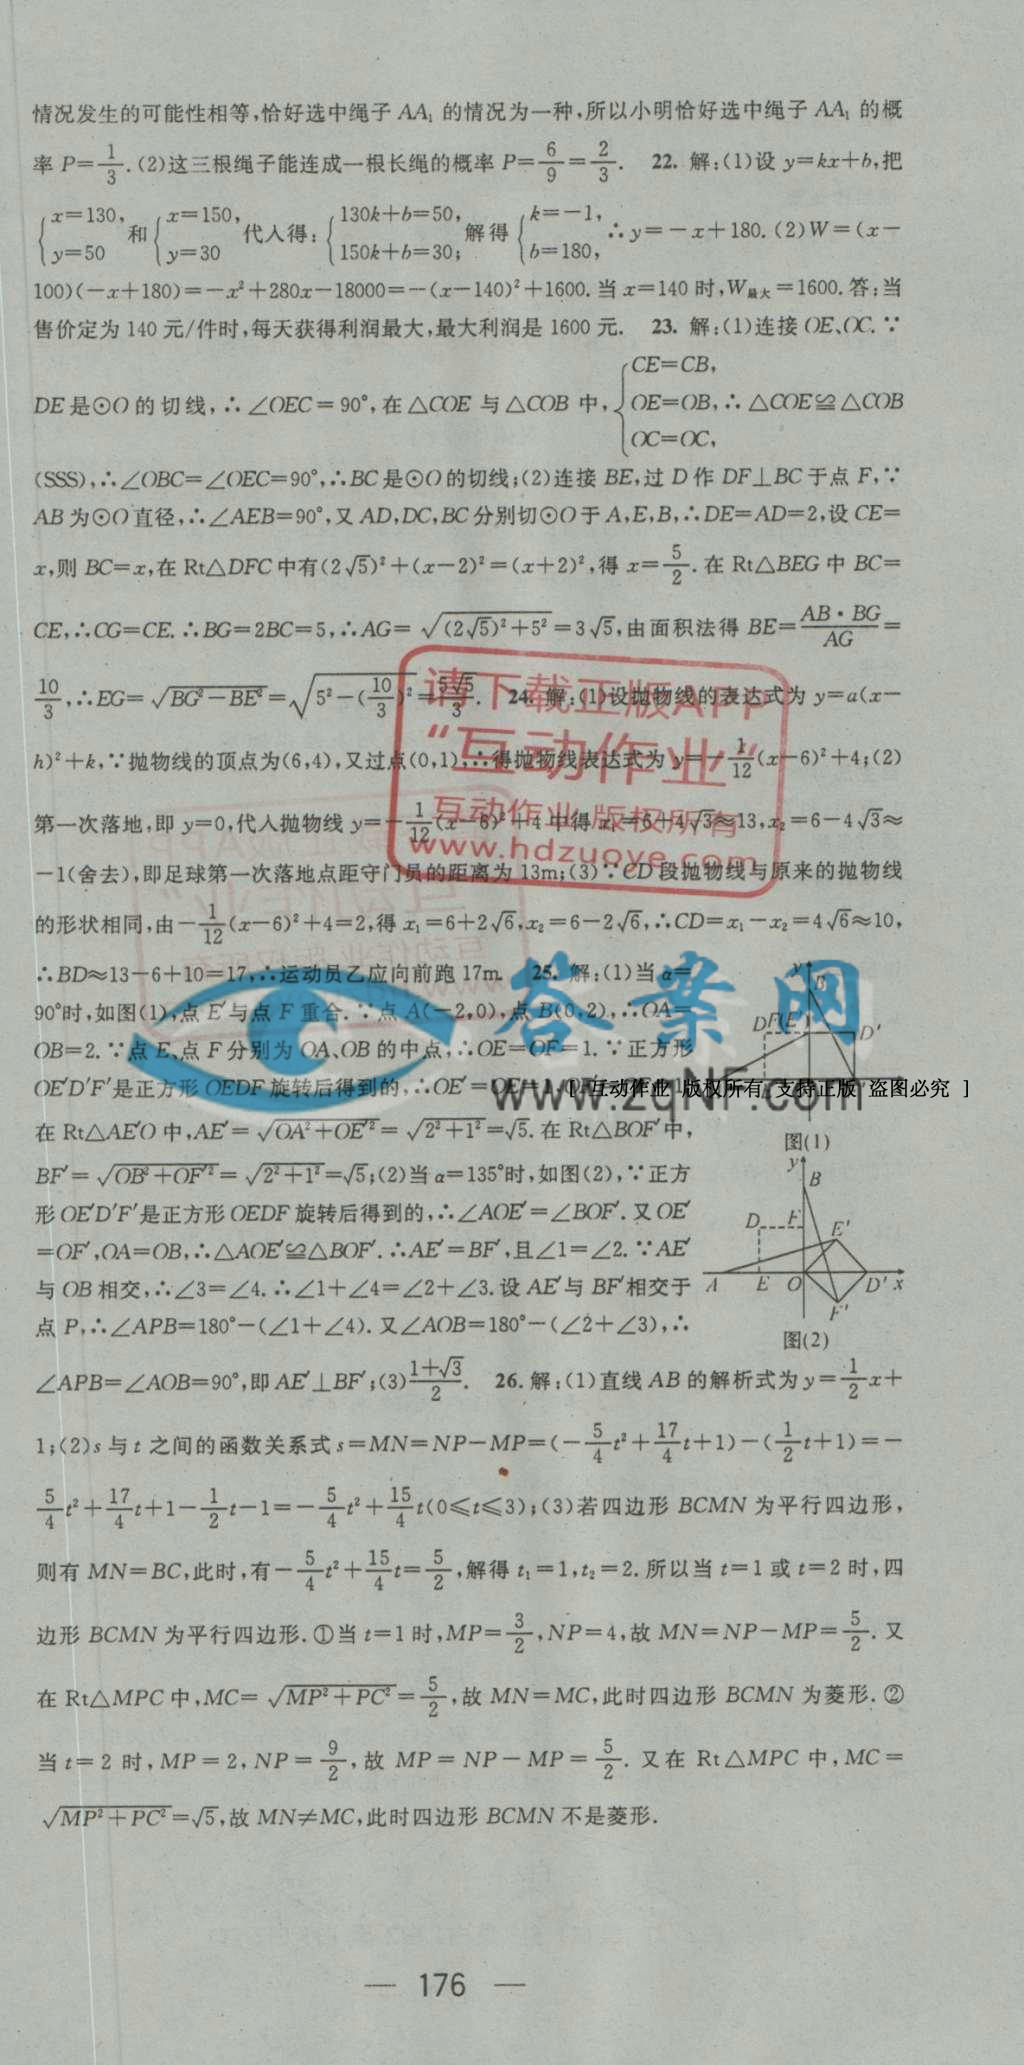 情况发生的可能性相等,恰好选中绳子 AA₁ 的情况为一种,所以小明恰好选中绳子 AA₁ 的概
率 P=1/3.(2)这三根绳子能连成一根长绳的概率 P=6/9=2/3. 22. 解:(1)设 y=kx+b,把
{x=130, y=50 和 {x=150, y=30 代入得: {130k+b=50, 150k+b=30; 解得 {k=-1, b=180, ∴y=-x+180.(2)W=(x-
100)(-x+180)=-x²+280x-18000=-(x-140)²+1600.当 x=140 时,W最大=1600.答:当
售价定为 140 元/件时,每天获得利润最大,最大利润是 1600 元. 23. 解:(1)连接 OE、OC.∵
DE 是⊙O 的切线,∴∠OEC=90°,在△COE 与△COB 中,{CE=CB, OE=OB, OC=OC, ∴△COE≌△COB
(SSS),∴∠OBC=∠OEC=90°,∴BC 是⊙O 的切线;(2)连接 BE,过 D 作 DF⊥BC 于点 F,∵
AB 为⊙O 直径,∴∠AEB=90°,又 AD,DC,BC 分别切⊙O 于 A,E,B,∴DE=AD=2,设 CE=
x,则 BC=x,在 Rt△DFC 中有(2√5)²+(x-2)²=(x+2)²,得 x=5/2.在 Rt△BEG 中 BC=
CE,∴CG=CE.∴BG=2BC=5,∴AG=√((2√5)²+5²)=3√5,由面积法得 BE=AB·BG/AG=
10/3,∴EG=√(BG²-BE²)=√(5²-(10/3)²)=5√5/3. 24. 解:(1)设抛物线的表达式为 y=a(x-
h)²+k,∵抛物线的顶点为(6,4),又过点(0,1),∴得抛物线表达式为 y=-1/12(x-6)²+4;(2)
第一次落地,即 y=0,代入抛物线 y=-1/12(x-6)²+4 中得 x₁=6+4√3≈13,x₂=6-4√3≈
-1(舍去),即足球第一次落地点距守门员的距离为 13m;(3)∵CD 段抛物线与原来的抛物线
的形状相同,由-1/12(x-6)²+4=2,得 x₁=6+2√6,x₂=6-2√6,∴CD=x₁-x₂=4√6≈10,
∴BD≈13-6+10=17,∴运动员乙应向前跑 17m. 25. 解:(1)当 α=
90°时,如图(1),点 E′与点 F 重合.∵点 A(-2,0),点 B(0,2),∴OA=
OB=2.∵点 E、点 F 分别为 OA、OB 的中点,∴OE=OF=1.∵正方形
OE′D′F′是正方形 OEDF 旋转后得到的,∴OE′=OE=1,
在 Rt△AE′O 中,AE′=√(OA²+OE′²)=√(2²+1²)=√5.在 Rt△BOF′中,
BF′=√(OB²+OF′²)=√(2²+1²)=√5;(2)当 α=135°时,如图(2),∵正方
形 OE′D′F′是正方形 OEDF 旋转后得到的,∴∠AOE′=∠BOF′.又 OE′
=OF′,OA=OB,∴△AOE′≌△BOF′.∴AE′=BF′,且∠1=∠2.∵AE′
与 OB 相交,∴∠3=∠4.∴∠1+∠4=∠2+∠3.设 AE′与 BF′相交于
点 P,∴∠APB=180°-(∠1+∠4).又∠AOB=180°-(∠2+∠3),∴
∠APB=∠AOB=90°,即 AE′⊥BF′;(3)(1+√3)/2. 26. 解:(1)直线 AB 的解析式为 y=1/2x+
1;(2)s 与 t 之间的函数关系式 s=MN=NP-MP=(-5/4t²+17/4t+1)-(1/2t+1)=-
5/4t²+17/4t+1-1/2t-1=-5/4t²+15/4t(0≤t≤3);(3)若四边形 BCMN 为平行四边形,
则有 MN=BC,此时,有-5/4t²+15/4t=5/2,解得 t₁=1,t₂=2.所以当 t=1 或 t=2 时,四
边形 BCMN 为平行四边形.①当 t=1 时,MP=3/2,NP=4,故 MN=NP-MP=5/2.又
在 Rt△MPC 中,MC=√(MP²+PC²)=5/2,故 MN=MC,此时四边形 BCMN 为菱形.②
当 t=2 时,MP=2,NP=9/2,故 MP=NP-MP=5/2.又在 Rt△MPC 中,MC=
√(MP²+PC²)=√5,故 MN≠MC,此时四边形 BCMN 不是菱形.
y B D E′ D′
图(1)
y
B
D F E′
A E O D′ x
F′
图(2)
请下载正版APP
“互动作业”
互动作业 版权所有
www.hdzuoye.com
答案网
www.zqNF.com
[ 互动作业 版权所有 支持正版 盗图必究 ]
— 176 —